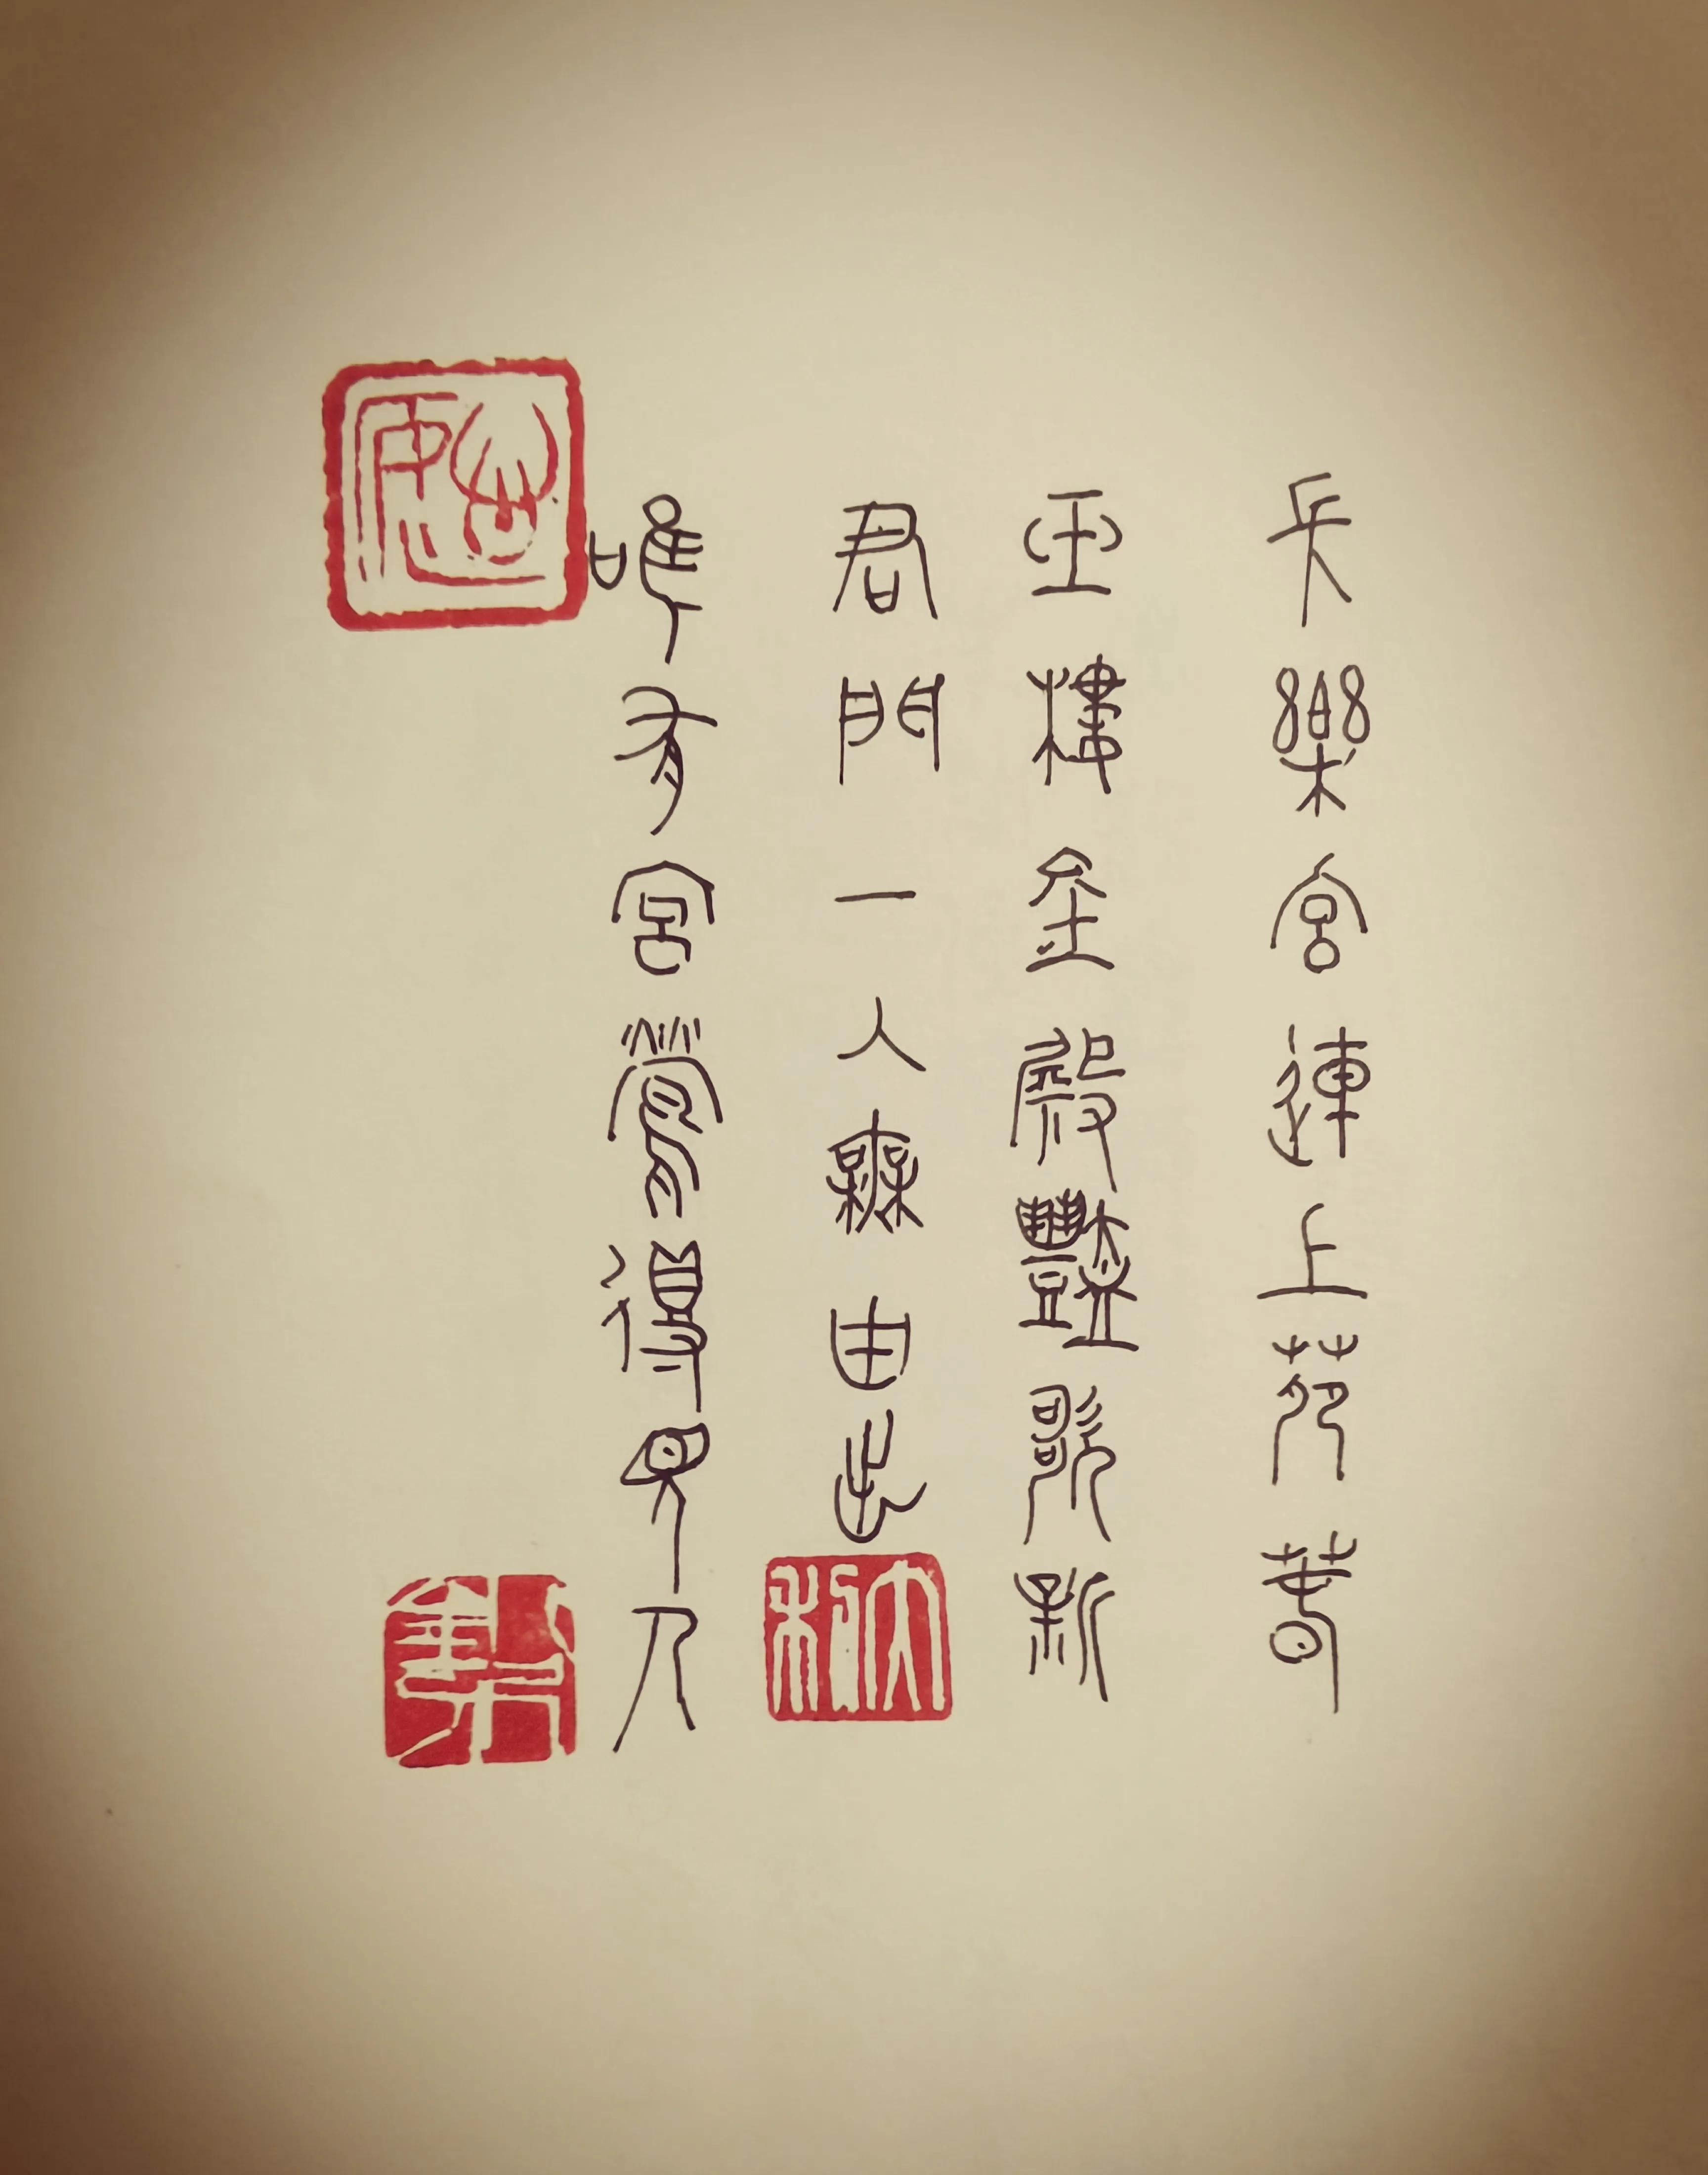 長樂宮連上苑春
玉樓金殿豔歌新
君門一入無由出
唯有宮鶯得見人